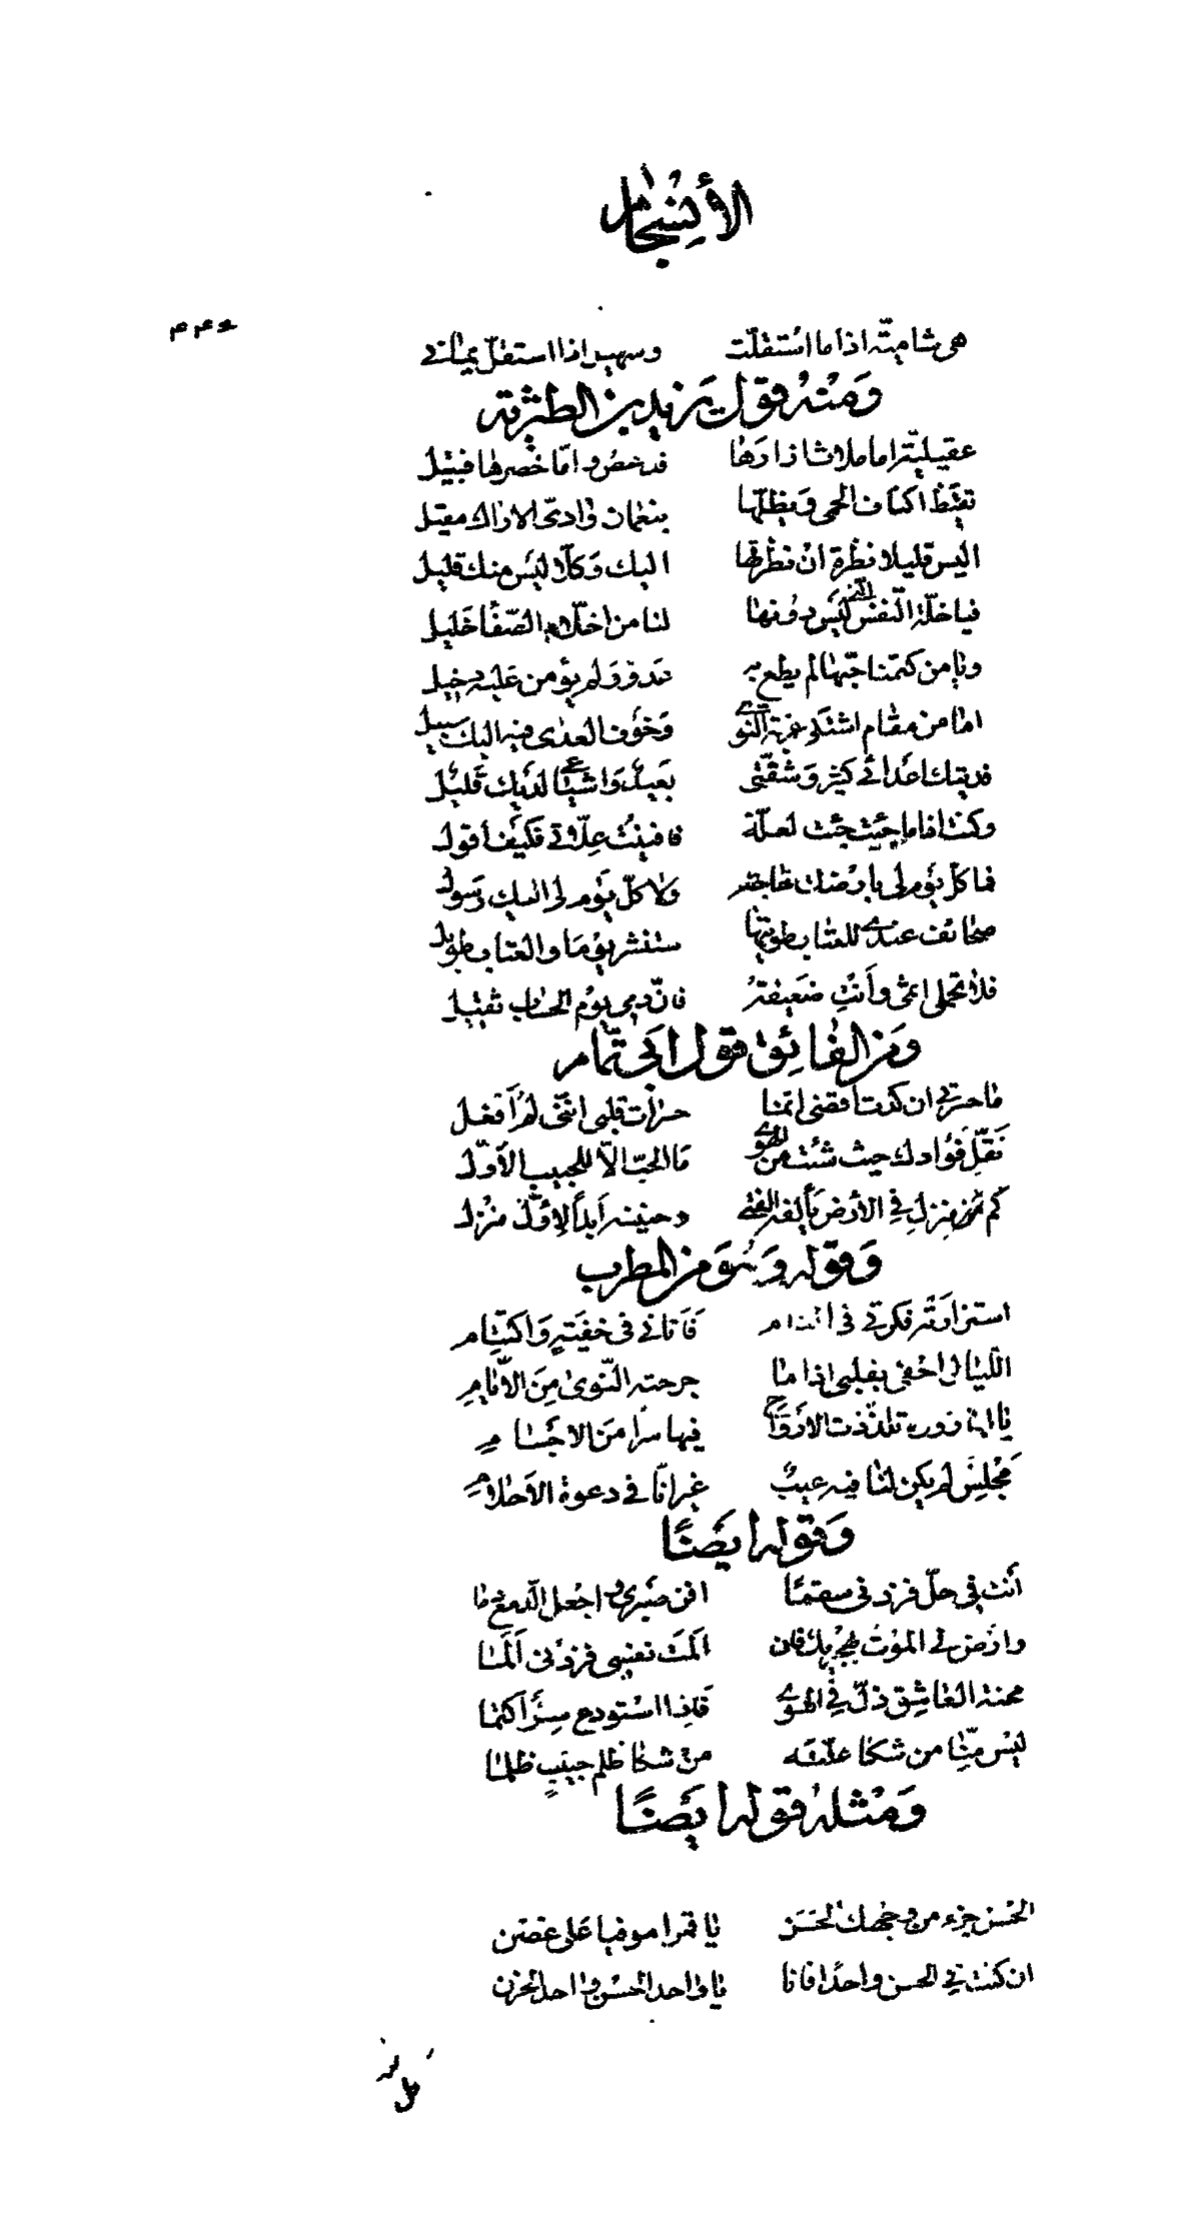 الأنسجام
هى شامية اذا ما استقلت وسهيل اذا استقل يمانى
ومنه قول يزيد بن الطثرية
عقيلية اما ملاث ازارها فدعص واما خصرها فبتيل
تقيظ اكناف الحمى ويظلها بنعمان وادى الاراك مقيل
اليس قليلا نظرة ان نظرتها اليك وكلا ليس منك قليل
فيا خلة النفس التى ليس دونها لنا من اخلاء الصفا خليل
ويا من كتمنا حبها لم يطع به عدو ولم يؤمن عليه دخيل
اما من مقام اشتكى غربة النوى وخوف العدى فيه اليك سبيل
فديتك أعدائى كثير وشقتى بعيد وأشياعى لديك قليل
وكنت اذا ما جئت جئت لعلة فافنيت علاتى فكيف أقول
فما كل يوم لى بارضك حاجة ولا كل يوم لى اليك رسول
صحائف عندى للعتاب طويتها ستنشر يوما والعتاب طويل
فلا تحملى اثمى وأنت ضعيفة فان دمى يوم الحساب ثقيل
ومن الفائق قول ابى تمام
ما حسرتى ان كدت اقضى انما حسرات قلبى اننى لم أفعل
نقل فؤادك حيث شئت من الهوى ما الحب الا للحبيب الأول
كم من منزل في الأرض يألفه الفتى وحنينه أبدا لاول منزل
وقوله وهو من المطرب
استزارته فكرتى فى المنام فأتانى فى خفية واكتتام
الليالى احفى بقلبى اذا ما جرحته النوى من الأيام
يا لها زورة تلذذت الارواح فيها سرا من الاجسام
مجلس لم يكن لنا فيه عيب غير انا فى دعوة الأحلام
وقوله ايضا
أنت فى حل فزدنى سقما افن صبرى واجعل الدمع دما
وارض لى الموت بهجريك فان المت نفسى فزدنى ألما
محنة العاشق ذل فى الهوى فاذا استودع سرا كتما
ليس منا من شكا علته من شكا ظلم حبيب ظلما
ومثله قوله ايضا
الحسن جزء من وجهك الحسن يا قمرا موفيا على غصن
ان كنت في الحسن واحدا فانا يا واحد الحسن واحد الحزن